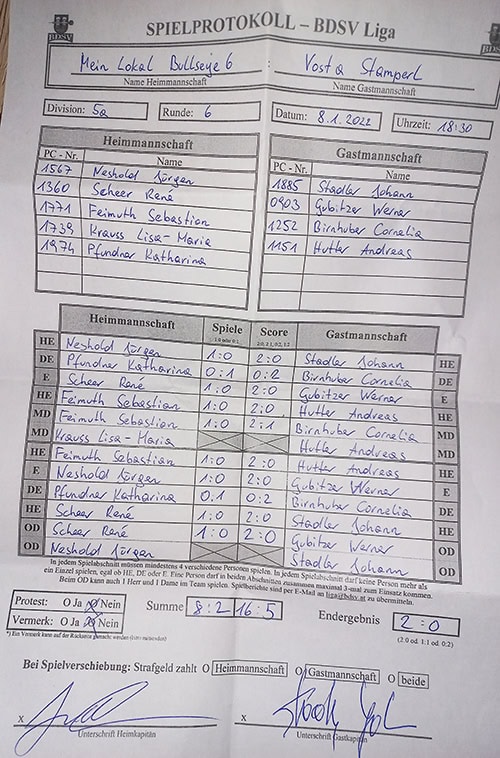 SPIELPROTOKOLL – BDSV Liga
BDSV
Mein Lokal Bullseye 6 : Vost a Stamperl
Name Heimmannschaft Name Gastmannschaft
Division: 5a Runde: 6 Datum: 8.1.2022 Uhrzeit: 18:30
Heimmannschaft Gastmannschaft
PC - Nr. Name PC - Nr. Name
1567 Neshold Jürgen 1885 Stadler Johann
1360 Scheer René 0903 Gubitzer Werner
1771 Feimuth Sebastian 1252 Birnhuber Cornelia
1739 Krauss Lisa-Maria 1151 Hutter Andreas
1974 Pfundner Katharina
Heimmannschaft Spiele Score Gastmannschaft
1:0 oder 0:1 2:0, 2:1, 0:2, 1:2
HE Neshold Jürgen 1:0 2:0 Stadler Johann HE
DE Pfundner Katharina 0:1 0:2 Birnhuber Cornelia DE
E Scheer René 1:0 2:0 Gubitzer Werner E
HE Feimuth Sebastian 1:0 2:0 Hutter Andreas HE
MD Feimuth Sebastian 1:0 2:1 Birnhuber Cornelia MD
MD Krauss Lisa-Maria Hutter Andreas MD
HE Feimuth Sebastian 1:0 2:0 Hutter Andreas HE
E Neshold Jürgen 1:0 2:0 Gubitzer Werner E
DE Pfundner Katharina 0:1 0:2 Birnhuber Cornelia DE
HE Scheer René 1:0 2:0 Stadler Johann HE
OD Scheer René 1:0 2:0 Gubitzer Werner OD
OD Neshold Jürgen Stadler Johann OD
In jedem Spielabschnitt müssen mindestens 4 verschiedene Personen spielen. In jedem Spielabschnitt darf keine Person mehr als
ein Einzel spielen, egal ob HE, DE oder E. Eine Person darf in beiden Abschnitten zusammen maximal 3-mal zum Einsatz kommen.
Beim OD kann auch 1 Herr und 1 Dame im Team spielen. Spielberichte sind per E-Mail an liga@bdsv.at zu übermitteln.
Protest: O Ja O Nein Summe 8:2 16:5 Endergebnis 2:0
Vermerk: O Ja O Nein (2:0 od. 1:1 od. 0:2)
*) Ein Vermerk kann auf der Rückseite gemacht werden
Bei Spielverschiebung: Strafgeld zahlt O Heimmannschaft O Gastmannschaft O beide
x x
Unterschrift Heimkapitän Unterschrift Gastkapitän